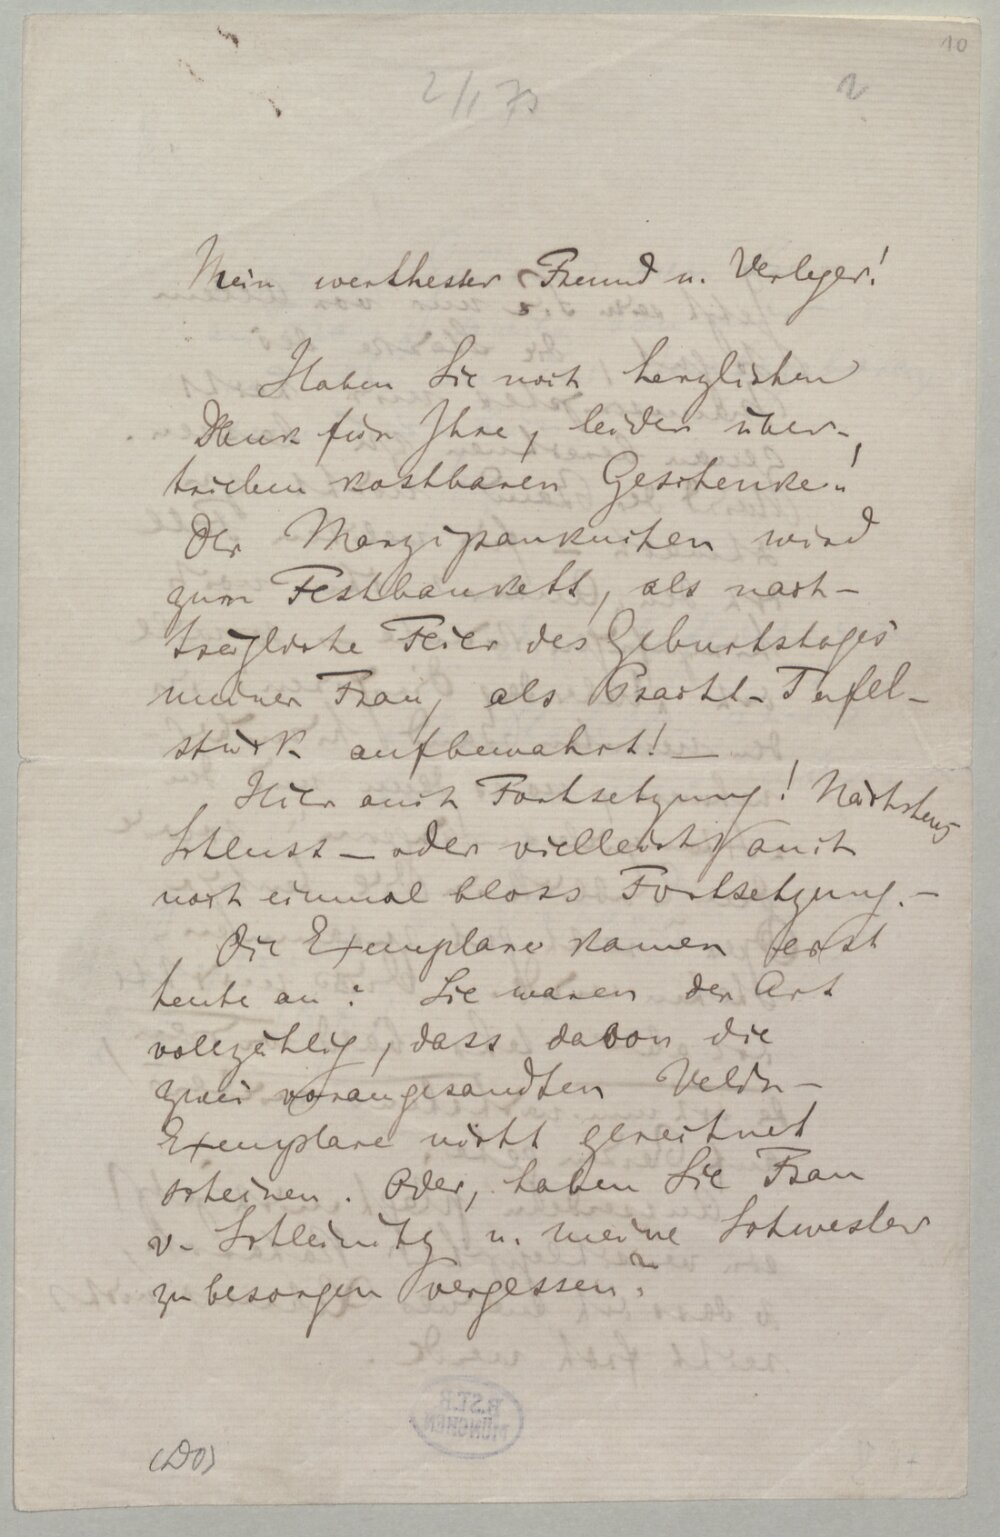 10
2/1 73
2
Mein werthester Freund u. Verleger!
Haben Sie noch herzlichen
Dank für Ihre, leider über-
trieben kostbaren Geschenke!
Der Marzipankuchen wird
zum Festbankett, als nach-
trägliche Feier des Geburtstages
meiner Frau, als Pracht-Tafel-
stück aufbewahrt! —
Hier auch Fortsetzung! Nächstens
Schluss — oder vielleicht auch
noch einmal bloss Fortsetzung. —
Die Exemplare kamen erst
heute an: Sie waren der Art
vollzählig, dass davon die
zwei vorangesandten Velin-
Exemplare nicht gerechnet
scheinen. Oder, haben Sie Frau
v. Schleinitz u. meine Schwester
zu besorgen vergessen?
B.ST.B
MÜNCHEN
(DO)